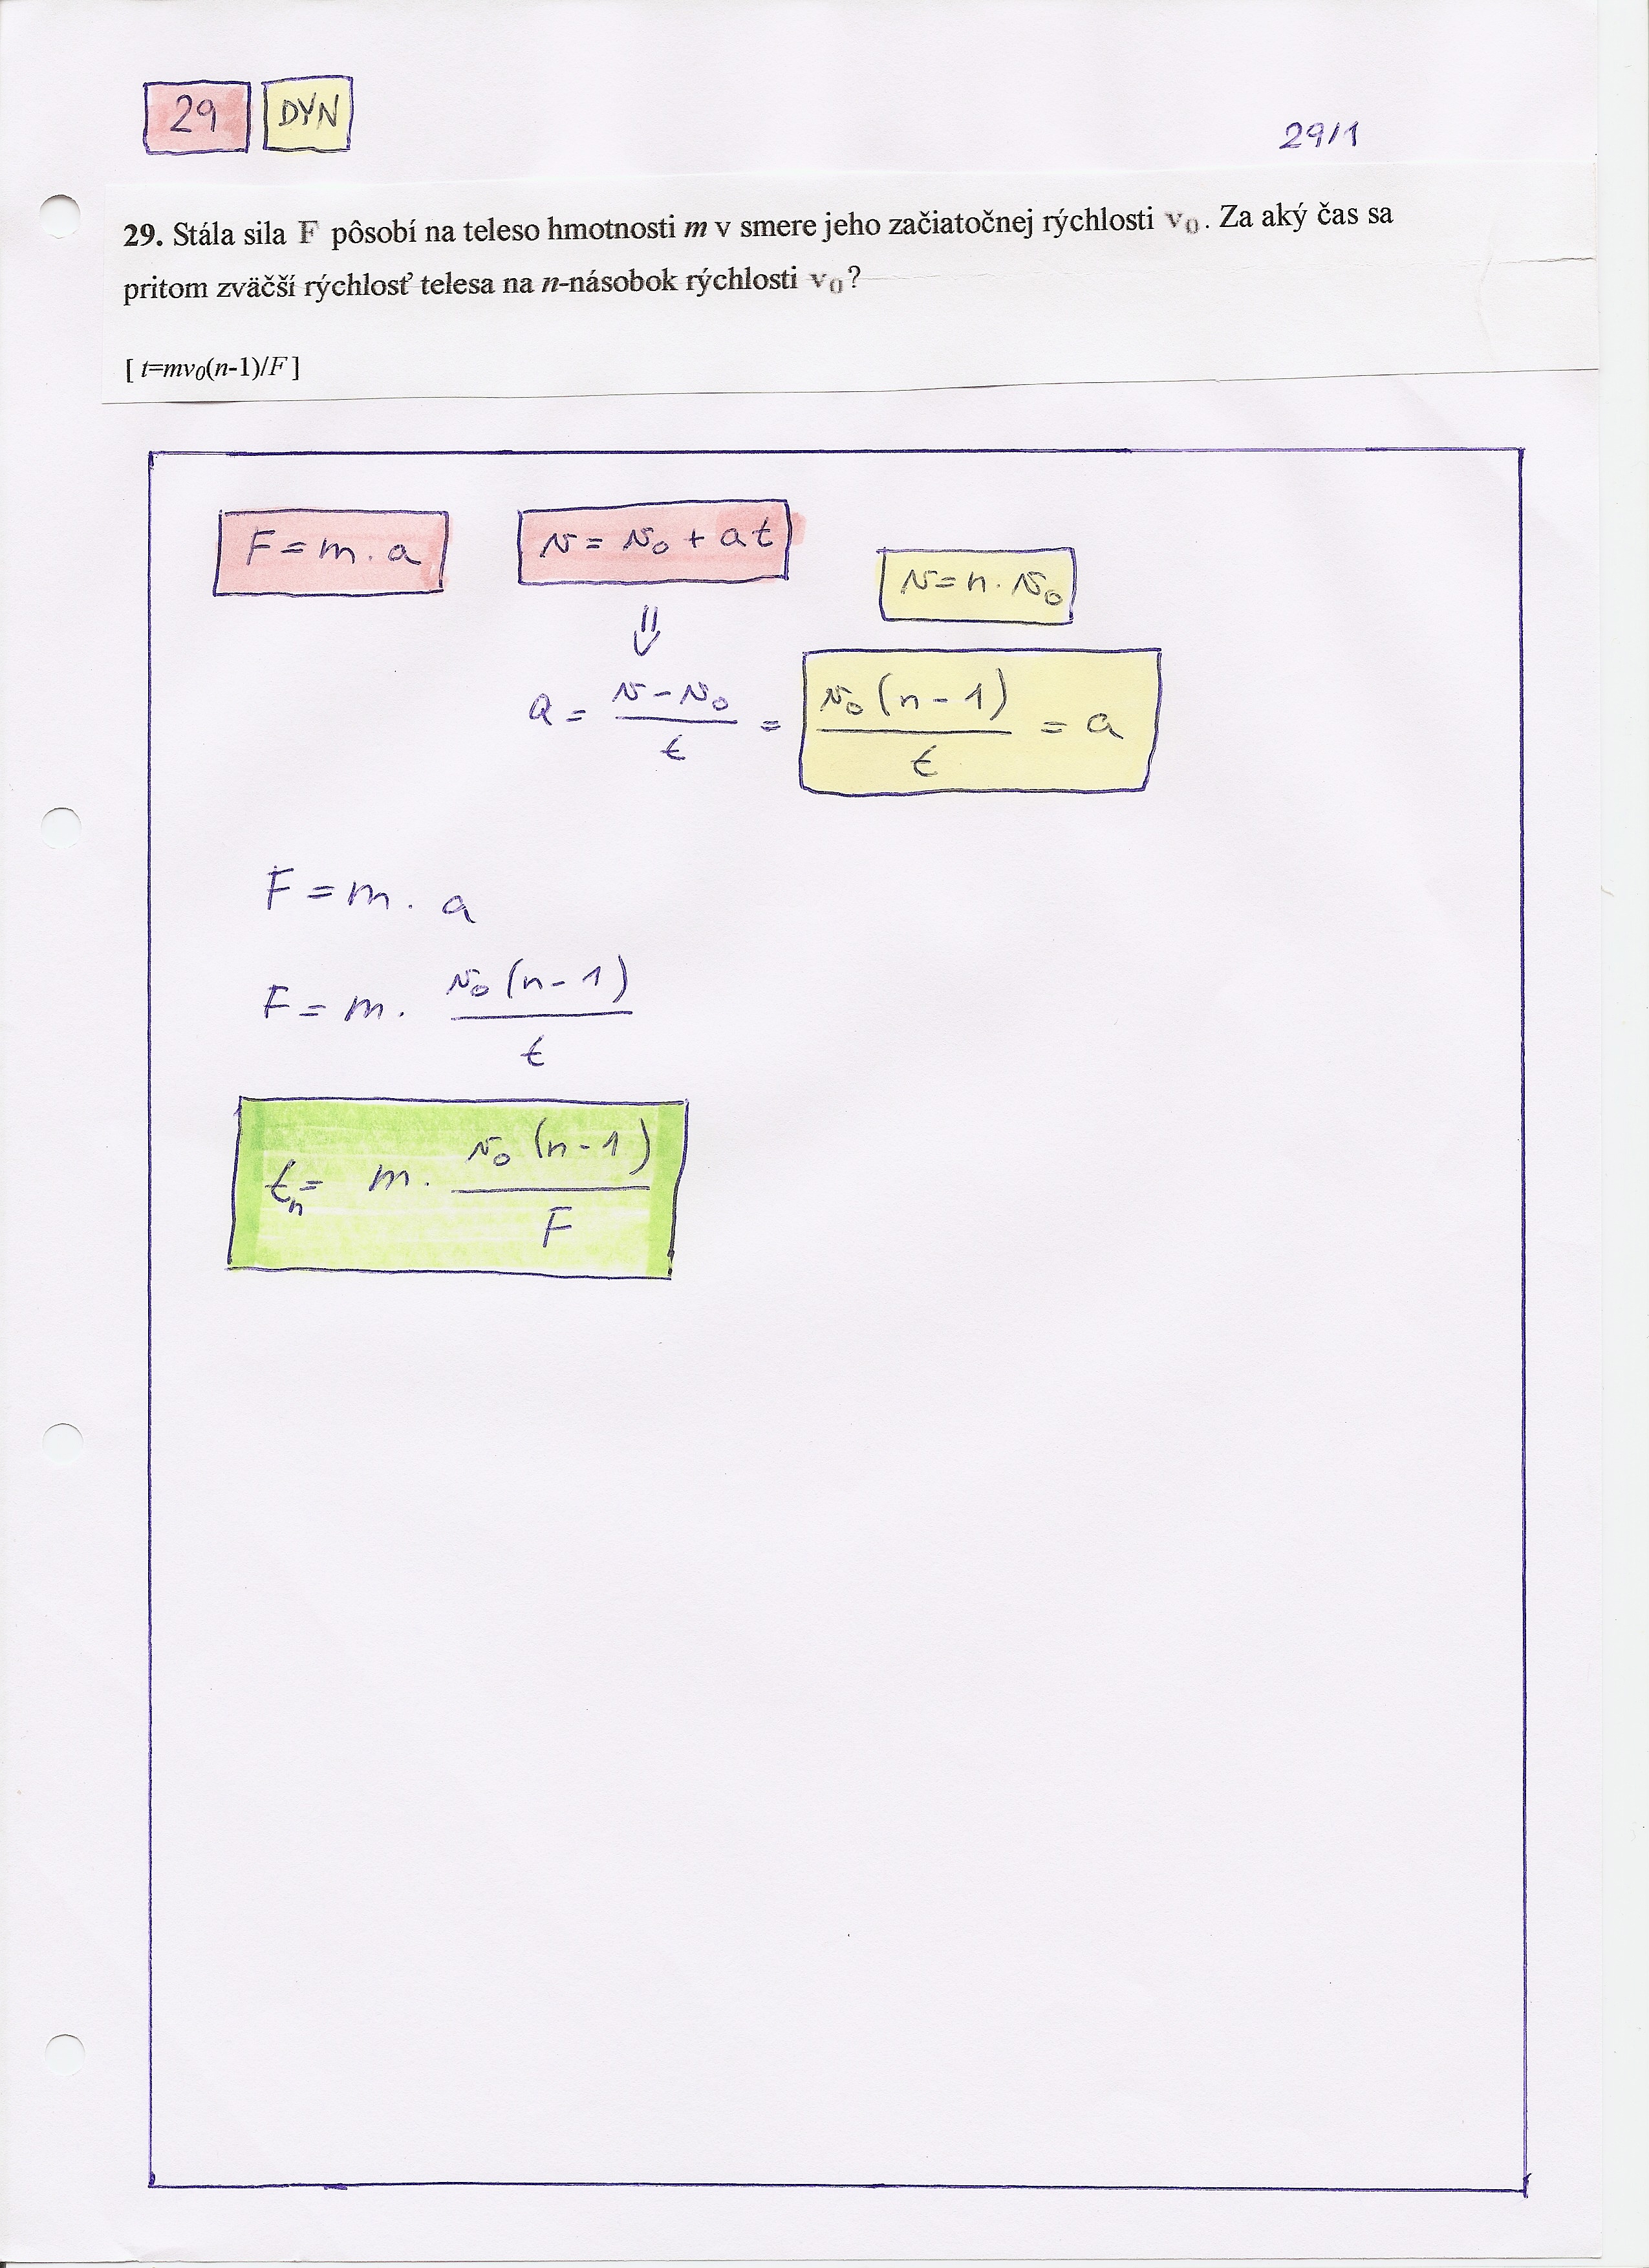 29 DYN
29/1
29. Stála sila F pôsobí na teleso hmotnosti m v smere jeho začiatočnej rýchlosti v₀. Za aký čas sa
pritom zväčší rýchlosť telesa na n-násobok rýchlosti v₀?
[ t=mv₀(n-1)/F ]
F = m . a
v = v₀ + at
v = n . v₀
⇓
a = (v - v₀)/t = v₀(n-1)/t = a
F = m . a
F = m . v₀(n-1)/t
tₙ = m . v₀(n-1)/F